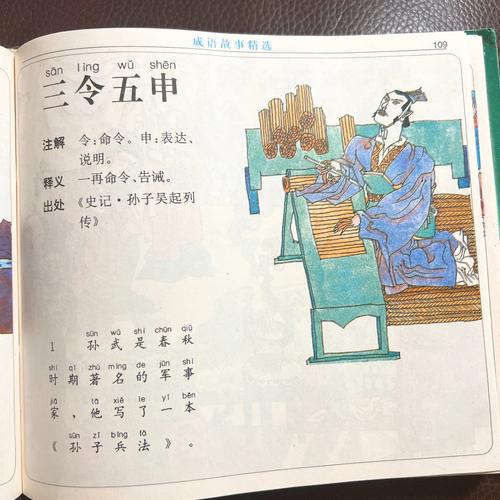 成语故事精选
109
sān lìng wǔ shēn
三令五申
注解 令:命令。申:表达、
说明。
释义 一再命令、告诫。
出处 《史记·孙子吴起列
传》
sūn wǔ shì chūn qiū
1 孙武是春秋
shí qī zhù míng de jūn shì
时期著名的军事
jiā tā xiě le yī běn
家,他写了一本
sūn zǐ bīng fǎ
《孙子兵法》。